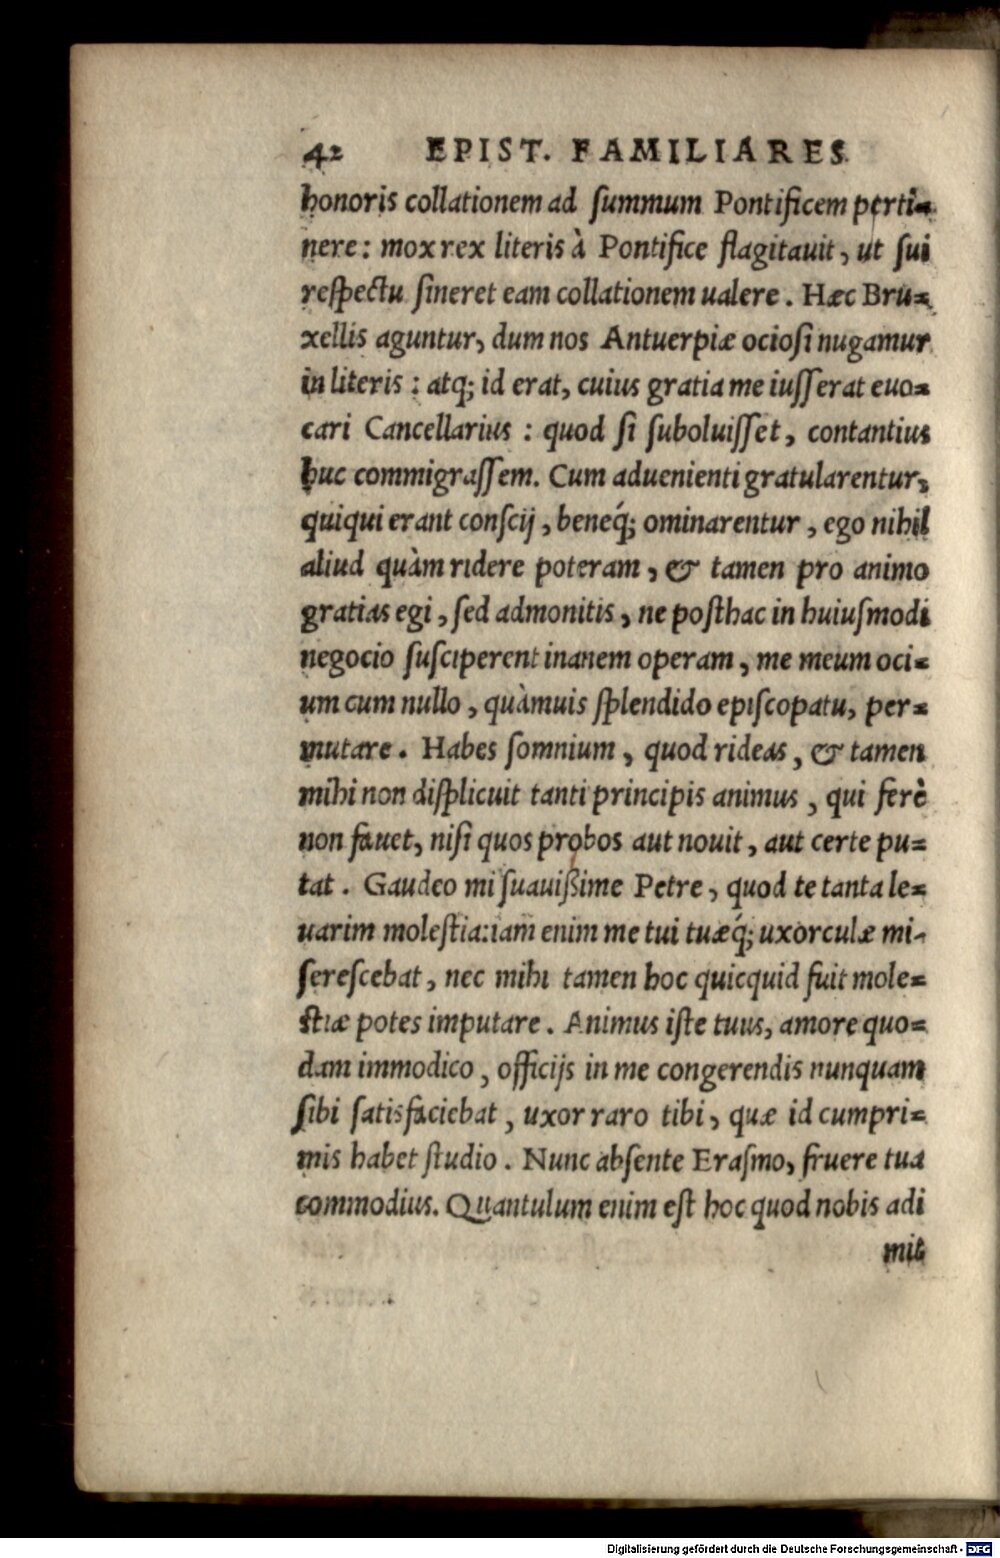 42 EPIST. FAMILIARES
honoris collationem ad ſummum Pontificem perti=
nere: mox rex literis à Pontifice flagitauit, ut ſui
reſpectu ſineret eam collationem ualere. Hæc Bru=
xellis aguntur, dum nos Antuerpiæ ocioſi nugamur
in literis: atq; id erat, cuius gratia me iuſſerat euo=
cari Cancellarius: quod ſi ſuboluiſſet, contantius
huc commigraſſem. Cum aduenienti gratularentur,
quiqui erant conſcij, beneq́; ominarentur, ego nihil
aliud quàm ridere poteram, & tamen pro animo
gratias egi, ſed admonitis, ne poſthac in huiuſmodi
negocio ſuſciperent inanem operam, me meum oci=
um cum nullo, quàmuis ſplendido epiſcopatu, per=
mutare. Habes ſomnium, quod rideas, & tamen
mihi non diſplicuit tanti principis animus, qui ferè
non fauet, niſi quos probos aut nouit, aut certe pu=
tat. Gaudeo mi ſuauißime Petre, quod te tanta le=
uarim moleſtia: iam enim me tui tuæq́; uxorculæ mi-
ſereſcebat, nec mihi tamen hoc quicquid fuit mole=
ſtiæ potes imputare. Animus iſte tuus, amore quo=
dam immodico, officijs in me congerendis nunquam
ſibi ſatisfaciebat, uxor raro tibi, quæ id cumpri=
mis habet ſtudio. Nunc abſente Eraſmo, fruere tua
commodius. Quantulum enim eſt hoc quod nobis adi
mit
Digitalisierung gefördert durch die Deutsche Forschungsgemeinschaft - DFG